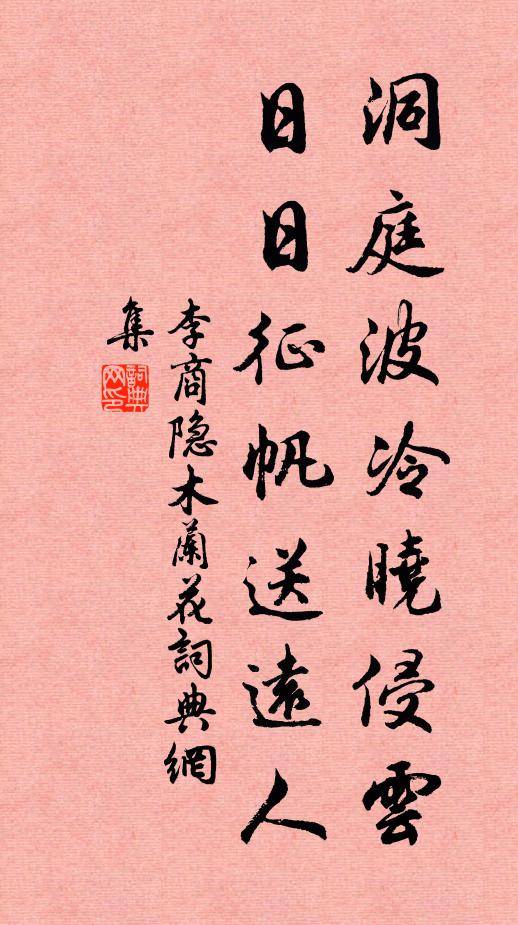 洞庭波冷曉侵雲
日日征帆送遠人
李商隐木蘭花詞典網
集
詞典
网印